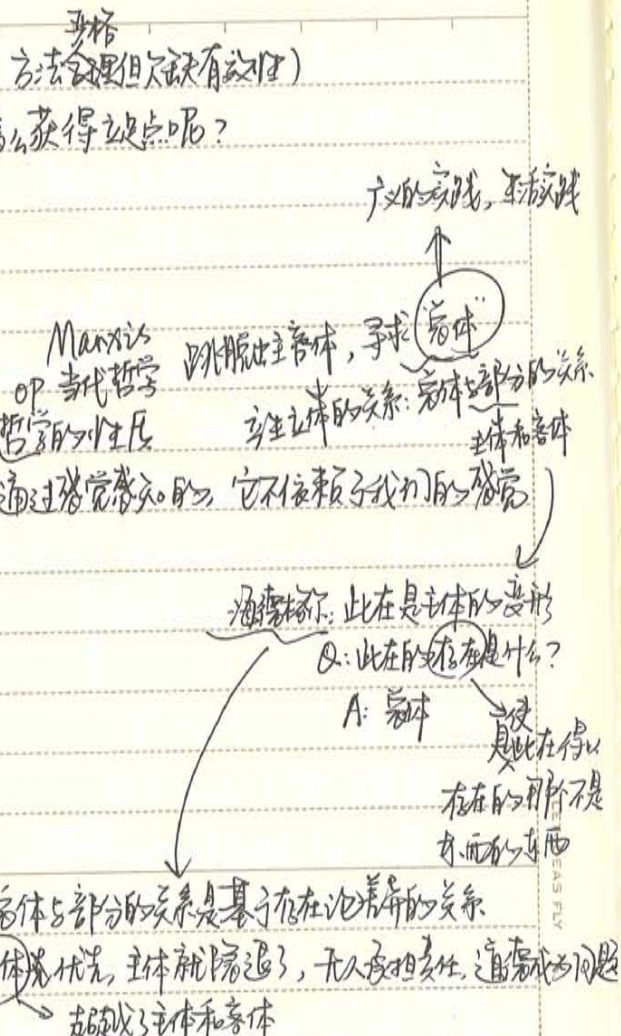 严格
方法合理但欠缺有效性)
么获得立足点呢?
广义的实践,生活实践
Marxis
OP 当代哲学
哲学的性质
跳脱出主客体,寻求"总体"
立体的关系:总体与部分的关系
主体和客体
通过感觉感知的,它不依赖于我们的感觉
海德格尔:此在是主体的变形
Q:此在的存在是什么?
A:总体
是使此在得以
存在的那个不是
东西的东西
总体与部分的关系是基于存在论差异的关系
体优先,主体就隐退了,无人承担责任,道德成为问题
超越了主体和客体
EAS FLY